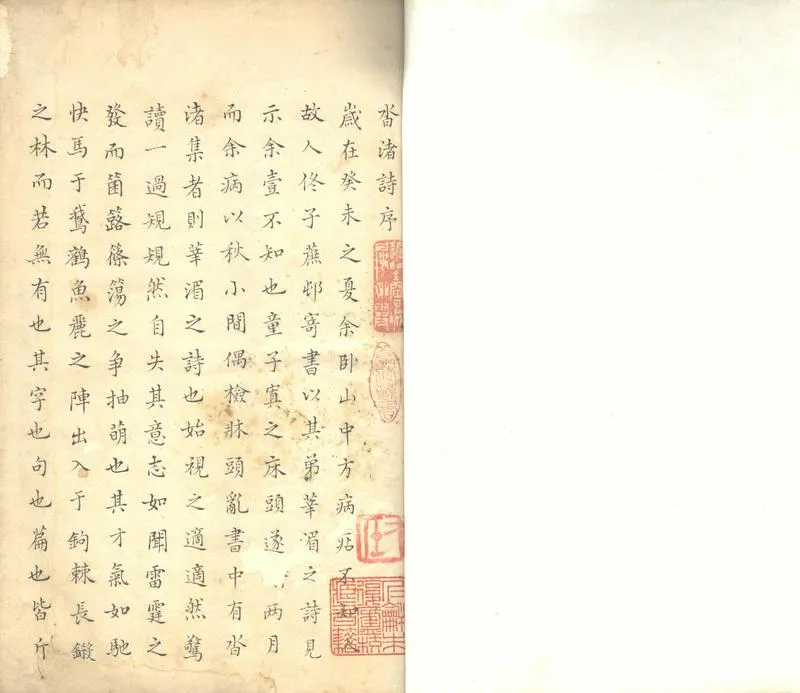 沓渚詩序
歲在癸未之夏余臥山中方病痁不知人
故人佟子蔗邨寄書以其弟莘湄之詩見
示余壹不知也童子寘之床頭遂兩月
而余病以秋小間偶檢牀頭亂書中有沓
渚集者則莘湄之詩也始視之適適然驚
讀一過䂓䂓然自失其意志如聞雷霆之
發而箘簬篠簜之爭抽萌也其才氣如馳
快馬于鵞鸛魚麗之陣出入于鉤棘長鎩
之林而若無有也其字也句也篇也皆斤